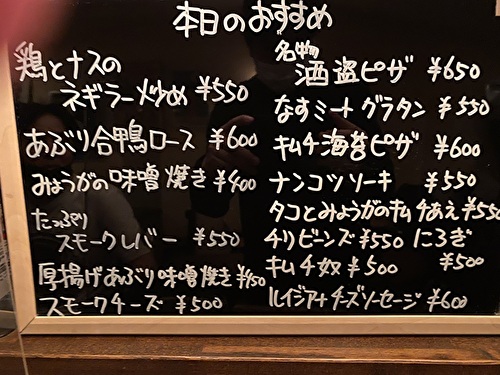 本日のおすすめ
鶏とナスの
ネギラー炒め ¥550
あぶり合鴨ロース ¥600
みょうがの味噌焼き ¥400
たっぷり
スモークレバー ¥550
厚揚げあぶり味噌焼き
スモークチーズ ¥500
名物
酒盗ピザ ¥650
なすミートグラタン ¥550
キムチ海苔ピザ ¥600
ナンコツソーキ ¥550
タコとみょうがのキムチあえ ¥550
チリビーンズ ¥550 にろぎ ¥500
キムチ奴 ¥500
ルイジアナチーズソーセージ ¥600